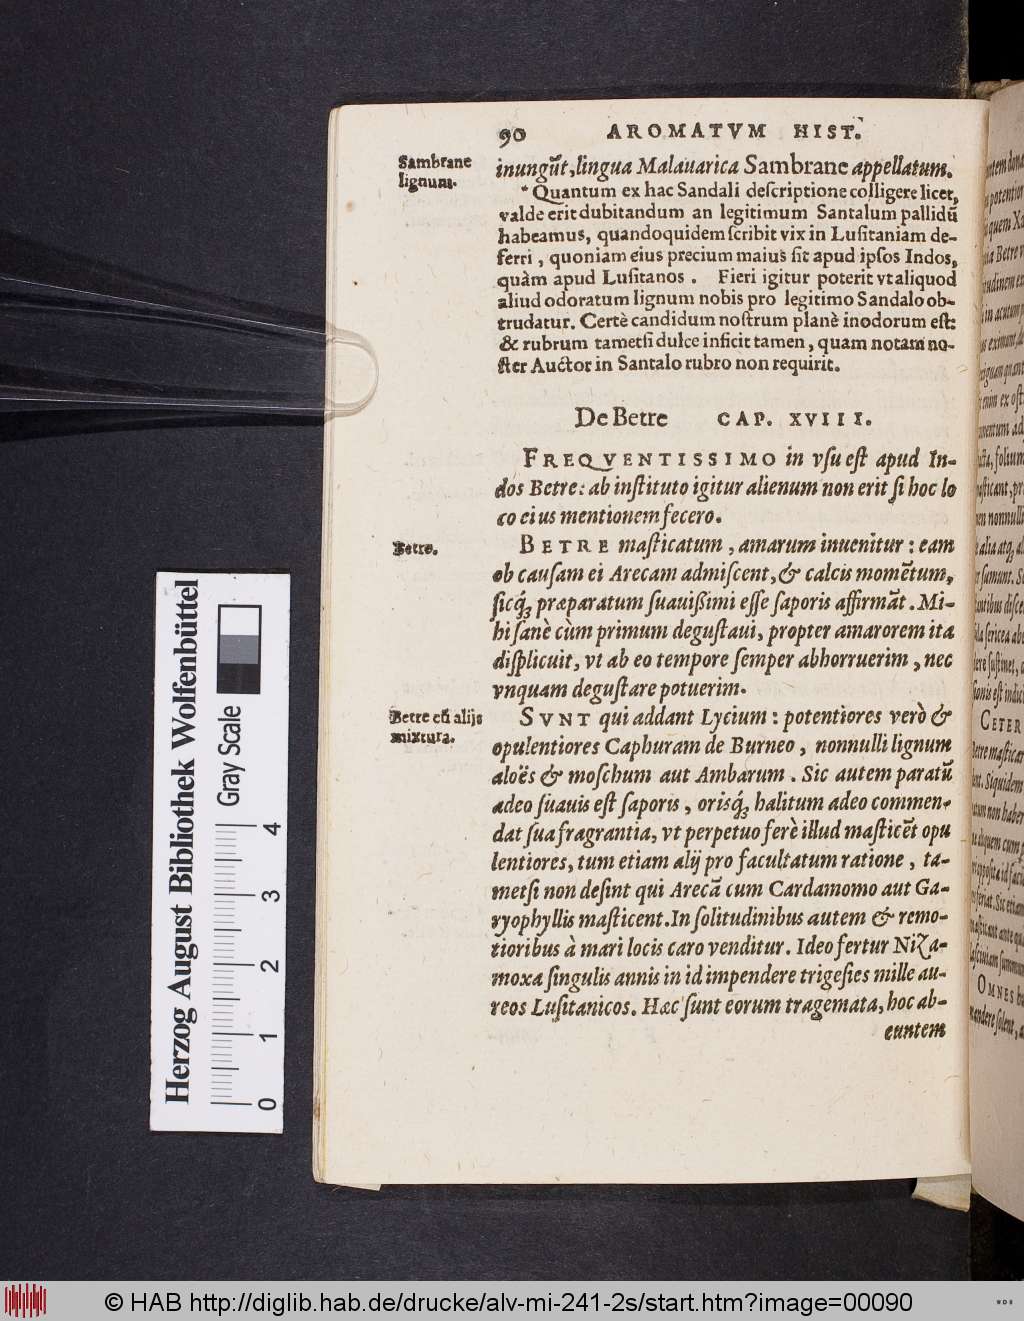 90 AROMATVM HIST.
Sambrane
lignum.
inungūt, lingua Malauarica Sambrane appellatum.
* Quantum ex hac Sandali descriptione colligere licet,
valde erit dubitandum an legitimum Santalum pallidū
habeamus, quandoquidem scribit vix in Lusitaniam de-
ferri, quoniam eius precium maius sit apud ipsos Indos,
quàm apud Lusitanos. Fieri igitur poterit vt aliquod
aliud odoratum lignum nobis pro legitimo Sandalo ob-
trudatur. Certè candidum nostrum planè inodorum est:
& rubrum tametsi dulce inficit tamen, quam notam no-
ster Auctor in Santalo rubro non requirit.
De Betre CAP. XVIII.
FREQVENTISSIMO in vsu est apud In-
dos Betre: ab instituto igitur alienum non erit si hoc lo
co eius mentionem fecero.
Betre.
BETRE masticatum, amarum inuenitur: eam
ob causam ei Arecam admiscent, & calcis momētum,
sicq́; præparatum suauißimi esse saporis affirmāt. Mi-
hi sanè cùm primum degustaui, propter amarorem ita
displicuit, vt ab eo tempore semper abhorruerim, nec
vnquam degustare potuerim.
Betre cū alijs
mixtura.
SVNT qui addant Lycium: potentiores verò &
opulentiores Caphuram de Burneo, nonnulli lignum
aloës & moschum aut Ambarum. Sic autem paratū
adeo suauis est saporis, orisq́; halitum adeo commen-
dat sua fragrantia, vt perpetuo ferè illud masticēt opu
lentiores, tum etiam alij pro facultatum ratione, ta-
metsi non desint qui Arecā cum Cardamomo aut Ga-
ryophyllis masticent. In solitudinibus autem & remo-
tioribus à mari locis caro venditur. Ideo fertur Niza-
moxa singulis annis in id impendere trigesies mille au-
reos Lusitanicos. Hæc sunt eorum tragemata, hoc ab-
euntem
Herzog August Bibliothek Wolfenbüttel
Gray Scale
0 1 2 3 4
© HAB http://diglib.hab.de/drucke/alv-mi-241-2s/start.htm?image=00090